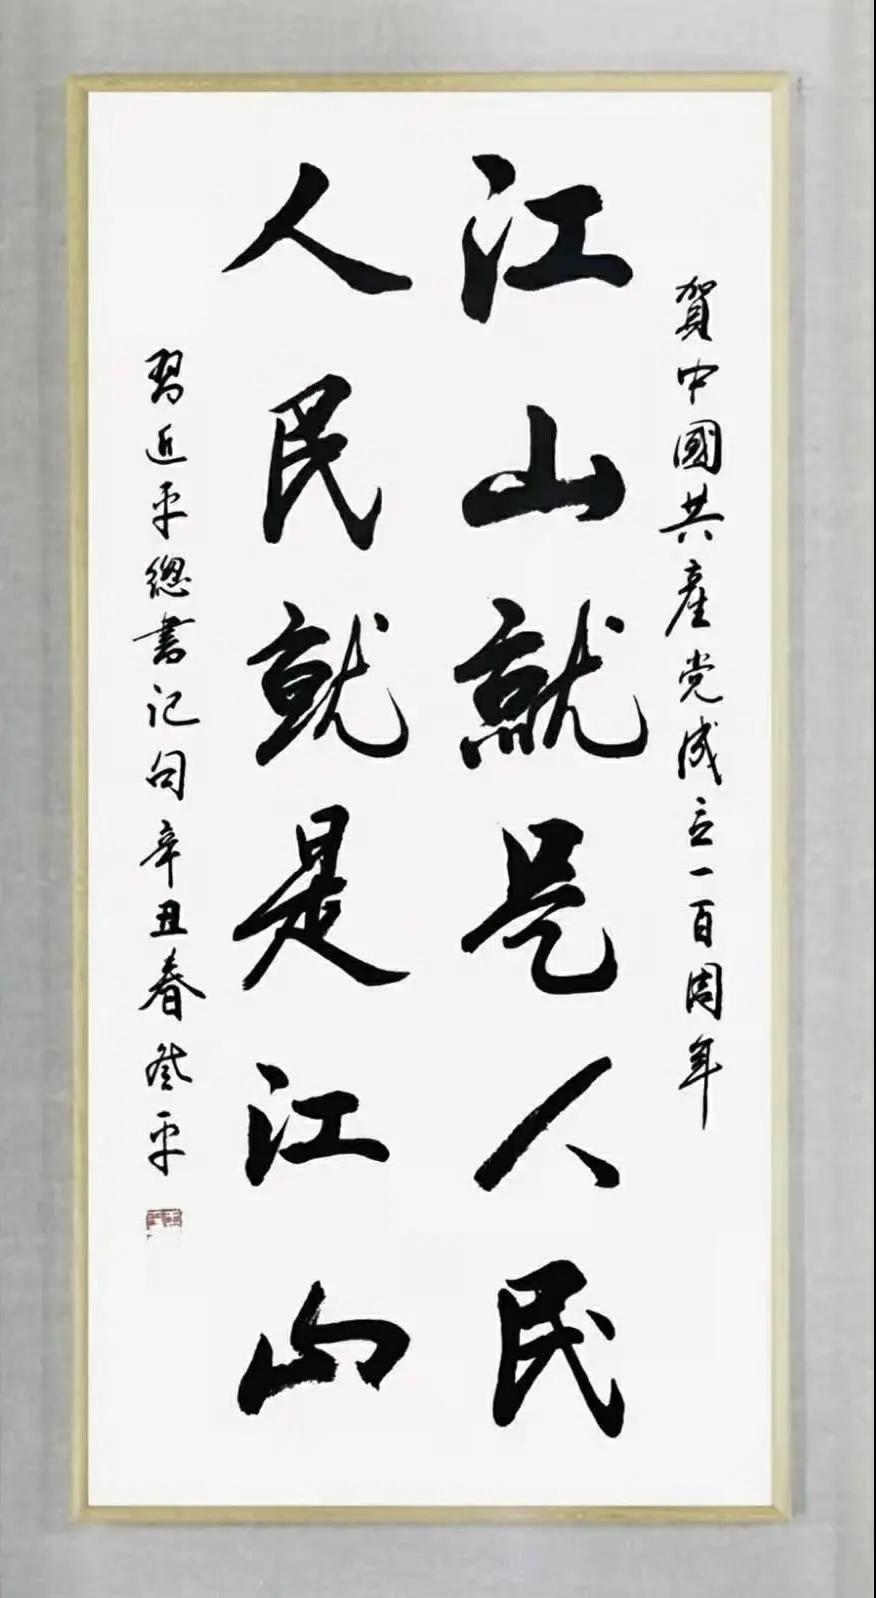 賀中國共產党成立一百周年
江山就是人民
人民就是江山
習近平總書记句辛丑春平